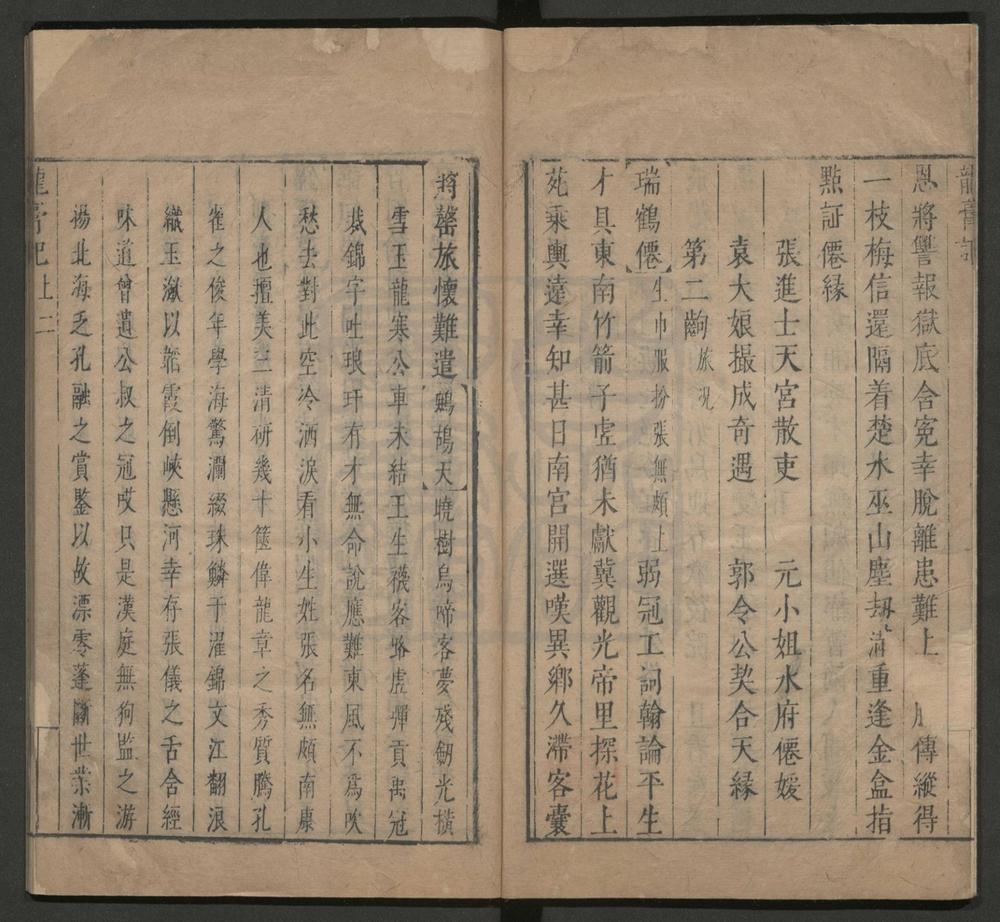 恩將讐報獄底含寃幸脫離患難上 傳縱得
一枝梅信還隔着楚水巫山塵刼滿重逢金盒指
點証僊緣
張進士天宮散吏 元小姐水府僊媛
袁大娘撮成奇遇 郭令公契合天緣
第二齣 旅况
瑞鶴僊 生巾服扮張無頗上 弱冠工詞翰論平生
才具東南竹箭子虗猶未獻冀觀光帝里探花上
苑乘輿遠幸知甚日南宮開選嘆異鄉久滯客囊
將罄旅懷難遣 鷓鴣天 曉樹烏啼客夢殘劒光橫
雪玉龍寒公車未結王生襪客路虗彈貢禹冠
裁錦字吐琅玕有才無命說應難東風不爲吹
愁去對此空泠洒淚看小生姓張名無頗南康
人也擅美三清研幾十篋偉龍章之秀質騰孔
雀之俊年學海驚瀾綴珠鱗于濯錦文江翻浪
織玉漵以韜霞倒峽懸河幸存張儀之舌含經
味道曾遺公叔之冠哎只是漢庭無狗監之游
揚北海乏孔融之賞鑒以故漂零蓬斷世業漸
龍膏記上 二